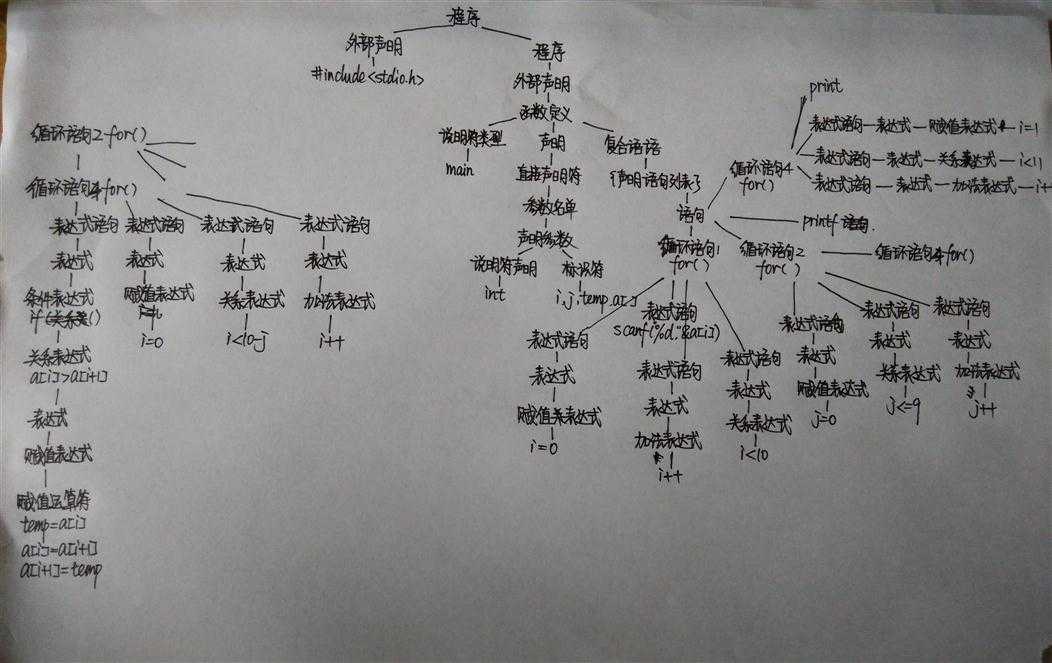 程序
外部声明
程序
#include<stdio.h>
外部声明
函数定义
说明符类型
声明
复合语语
main
直接声明符
{声明语句列表}
参数名单
语句
声明参数
说明符声明
标识符
int
i,j,temp,a[]
循环语句1
for()
循环语句2
for()
循环语句4
for()
print
表达式语句—表达式—赋值表达式—i=1
表达式语句—表达式—关系表达式—i<11
表达式语句—表达式—加法表达式—i+
printf 语句.
循环语句4for()
表达式语句
表达式
赋值表达式
i=0
表达式语句
scanf("%d",&a[i])
表达式语句
表达式
加法表达式
i++
表达式语句
表达式
关系表达式
i<10
表达式语句
表达式
赋值表达式
j=0
表达式语句
表达式
关系表达式
j<=9
表达式语句
表达式
加法表达式
j++
循环语句2-for()
循环语句4for()
表达式语句
表达式
条件表达式
if(关系)
关系表达式
a[i]>a[i+1]
表达式
赋值表达式
赋值运算符
temp=a[i]
a[i]=a[i+1]
a[i+1]=temp
表达式语句
表达式
赋值表达式
i=0
表达式语句
表达式
关系表达式
i<10-j
表达式语句
表达式
加法表达式
i++